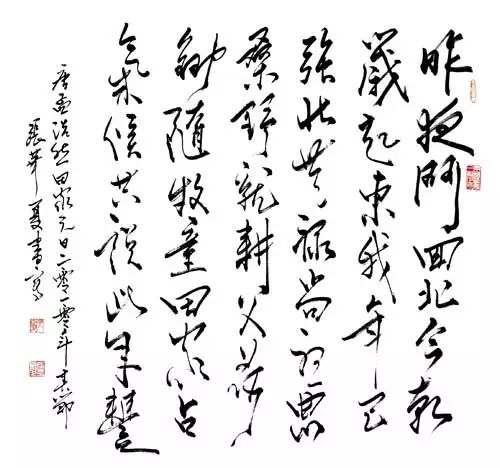 昨夜鬥回北今朝
歲起東我年已
強壯無祿尚憂農
桑野就耕父荷
鋤隨牧童田家占
氣候共說此年豐
唐孟浩然田家元日二零一零年春節
張華夏書